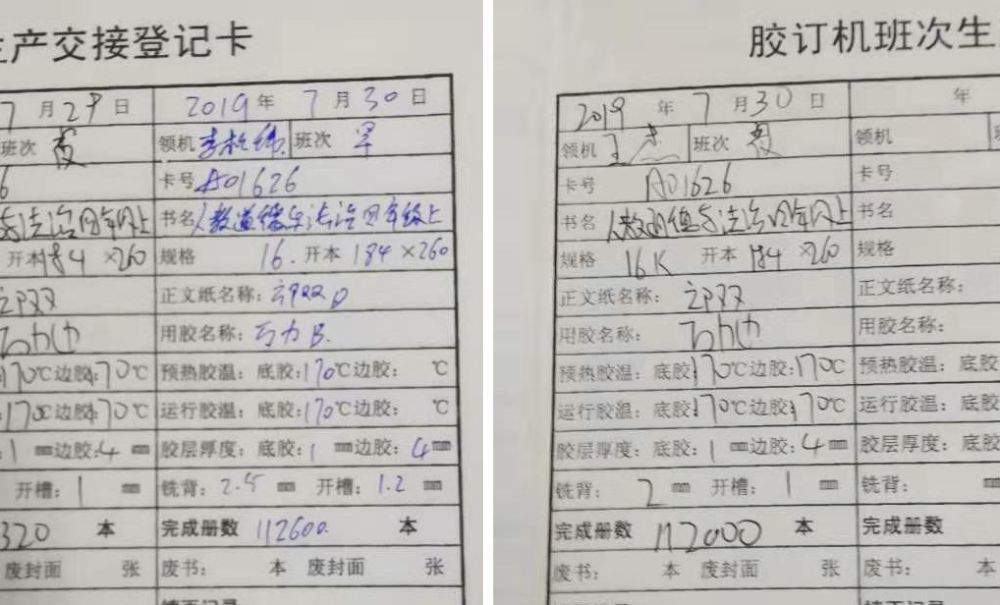 生产交接登记卡
7 月 29 日
2019 年 7 月 30 日
班次 夜
领机 班次 早
6
卡号 A01626
与法治四年级上
书名 人教道德与法治四年级上
开本 184 ×260
规格 16. 开本 184 ×260
正文纸名称:
用胶名称: 巧力 B.
170℃ 边胶: 70℃
预热胶温: 底胶: 170℃ 边胶: ℃
170℃ 边胶: 170℃
运行胶温: 底胶: 170℃ 边胶: ℃
1 mm 边胶: 4 mm
胶层厚度: 底胶: 1 mm 边胶: 4 mm
开槽: 1 mm
铣背: 2.5 mm 开槽: 1.2 mm
320 本
完成册数 112600. 本
废封面 张
废书: 本 废封面 张
胶订机班次生
2019 年 7 月 30 日
年
领机 王杰 班次 夜
领机
卡号 A01626
卡号
书名 人教道德与法治四年级上
书名
规格 16K 开本 184 ×260
规格
正文纸名称:
正文纸名称:
用胶名称:
用胶名称:
预热胶温: 底胶: 170℃ 边胶: 170℃
预热胶温: 底胶
运行胶温: 底胶: 170℃ 边胶: 170℃
运行胶温: 底胶
胶层厚度: 底胶: 1 mm 边胶: 4 mm
胶层厚度: 底胶
铣背: 2 mm 开槽: 1 mm
铣背:
完成册数 112000 本
完成册数
废书: 本 废封面 张
废书: 本